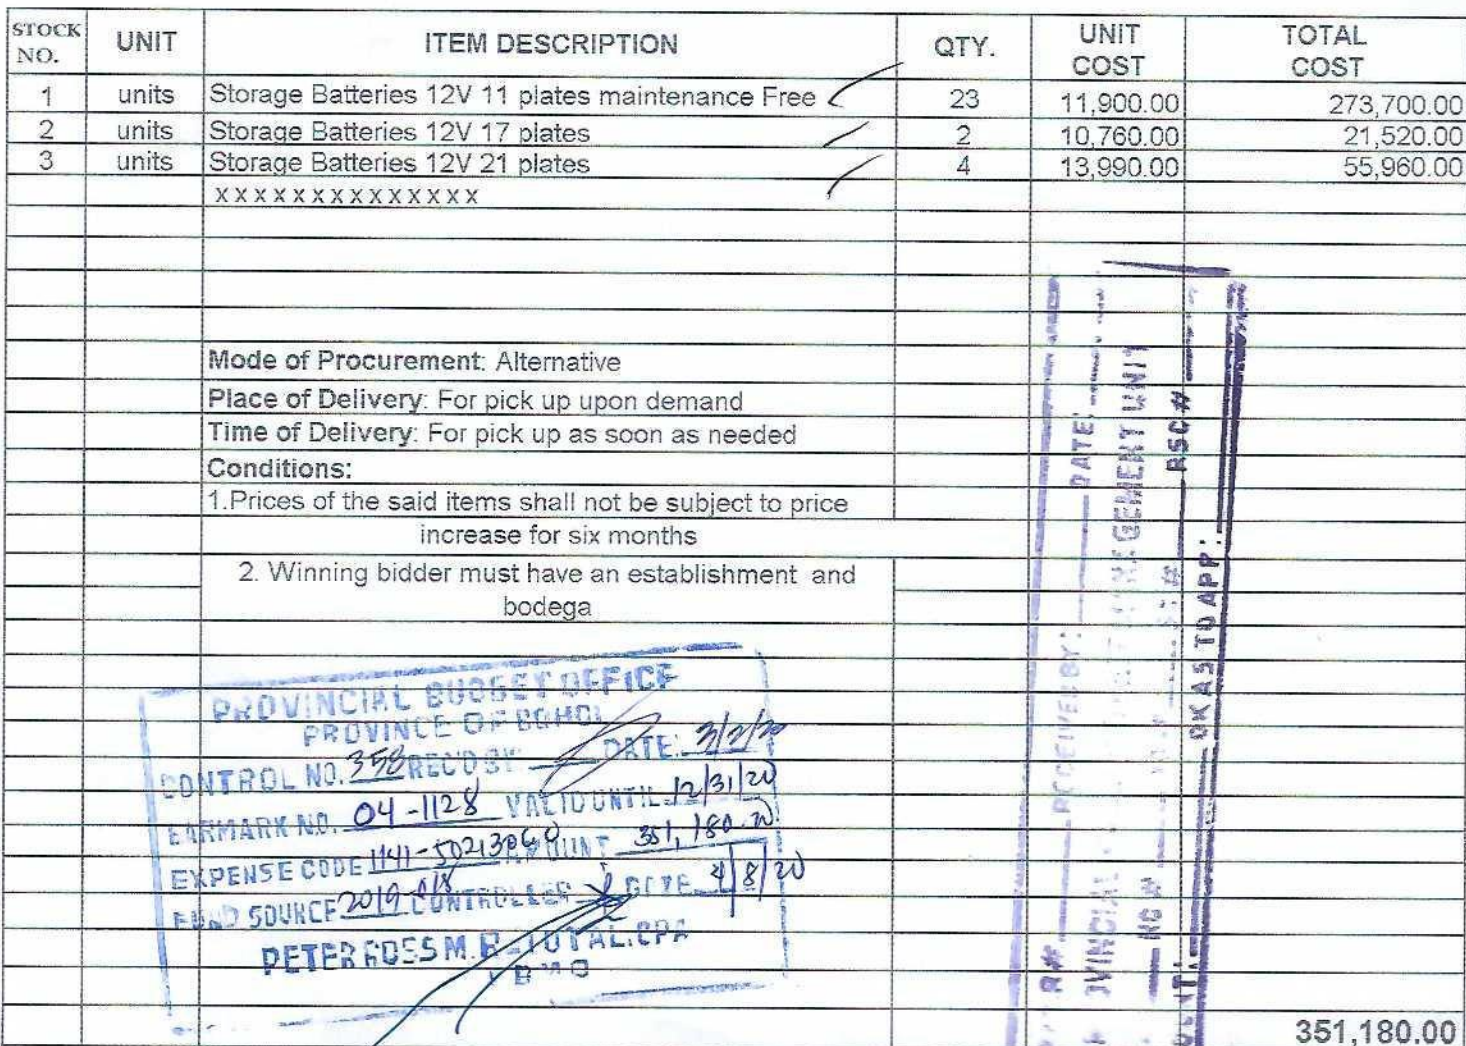 STOCK NO. UNIT ITEM DESCRIPTION QTY. UNIT COST TOTAL COST
1 units Storage Batteries 12V 11 plates maintenance Free 23 11,900.00 273,700.00
2 units Storage Batteries 12V 17 plates 2 10,760.00 21,520.00
3 units Storage Batteries 12V 21 plates 4 13,990.00 55,960.00
x x x x x x x x x x x x x x
Mode of Procurement: Alternative
Place of Delivery: For pick up upon demand
Time of Delivery: For pick up as soon as needed
Conditions:
1.Prices of the said items shall not be subject to price
increase for six months
2. Winning bidder must have an establishment and
bodega
PROVINCIAL BUDGET OFFICE
PROVINCE OF BOHOL
CONTROL NO. 358 RECD BY DATE: 3/2/20
EARMARK NO. 04-1128 VALID UNTIL 12/31/20
EXPENSE CODE AMOUNT 351,180.00
FUND SOURCE CONTROLLER DATE 4/8/20
PETER ROSS M. CPA
RECEIVED BY: DATE:
UNIT
RSC#
OK AS TO APP:
351,180.00